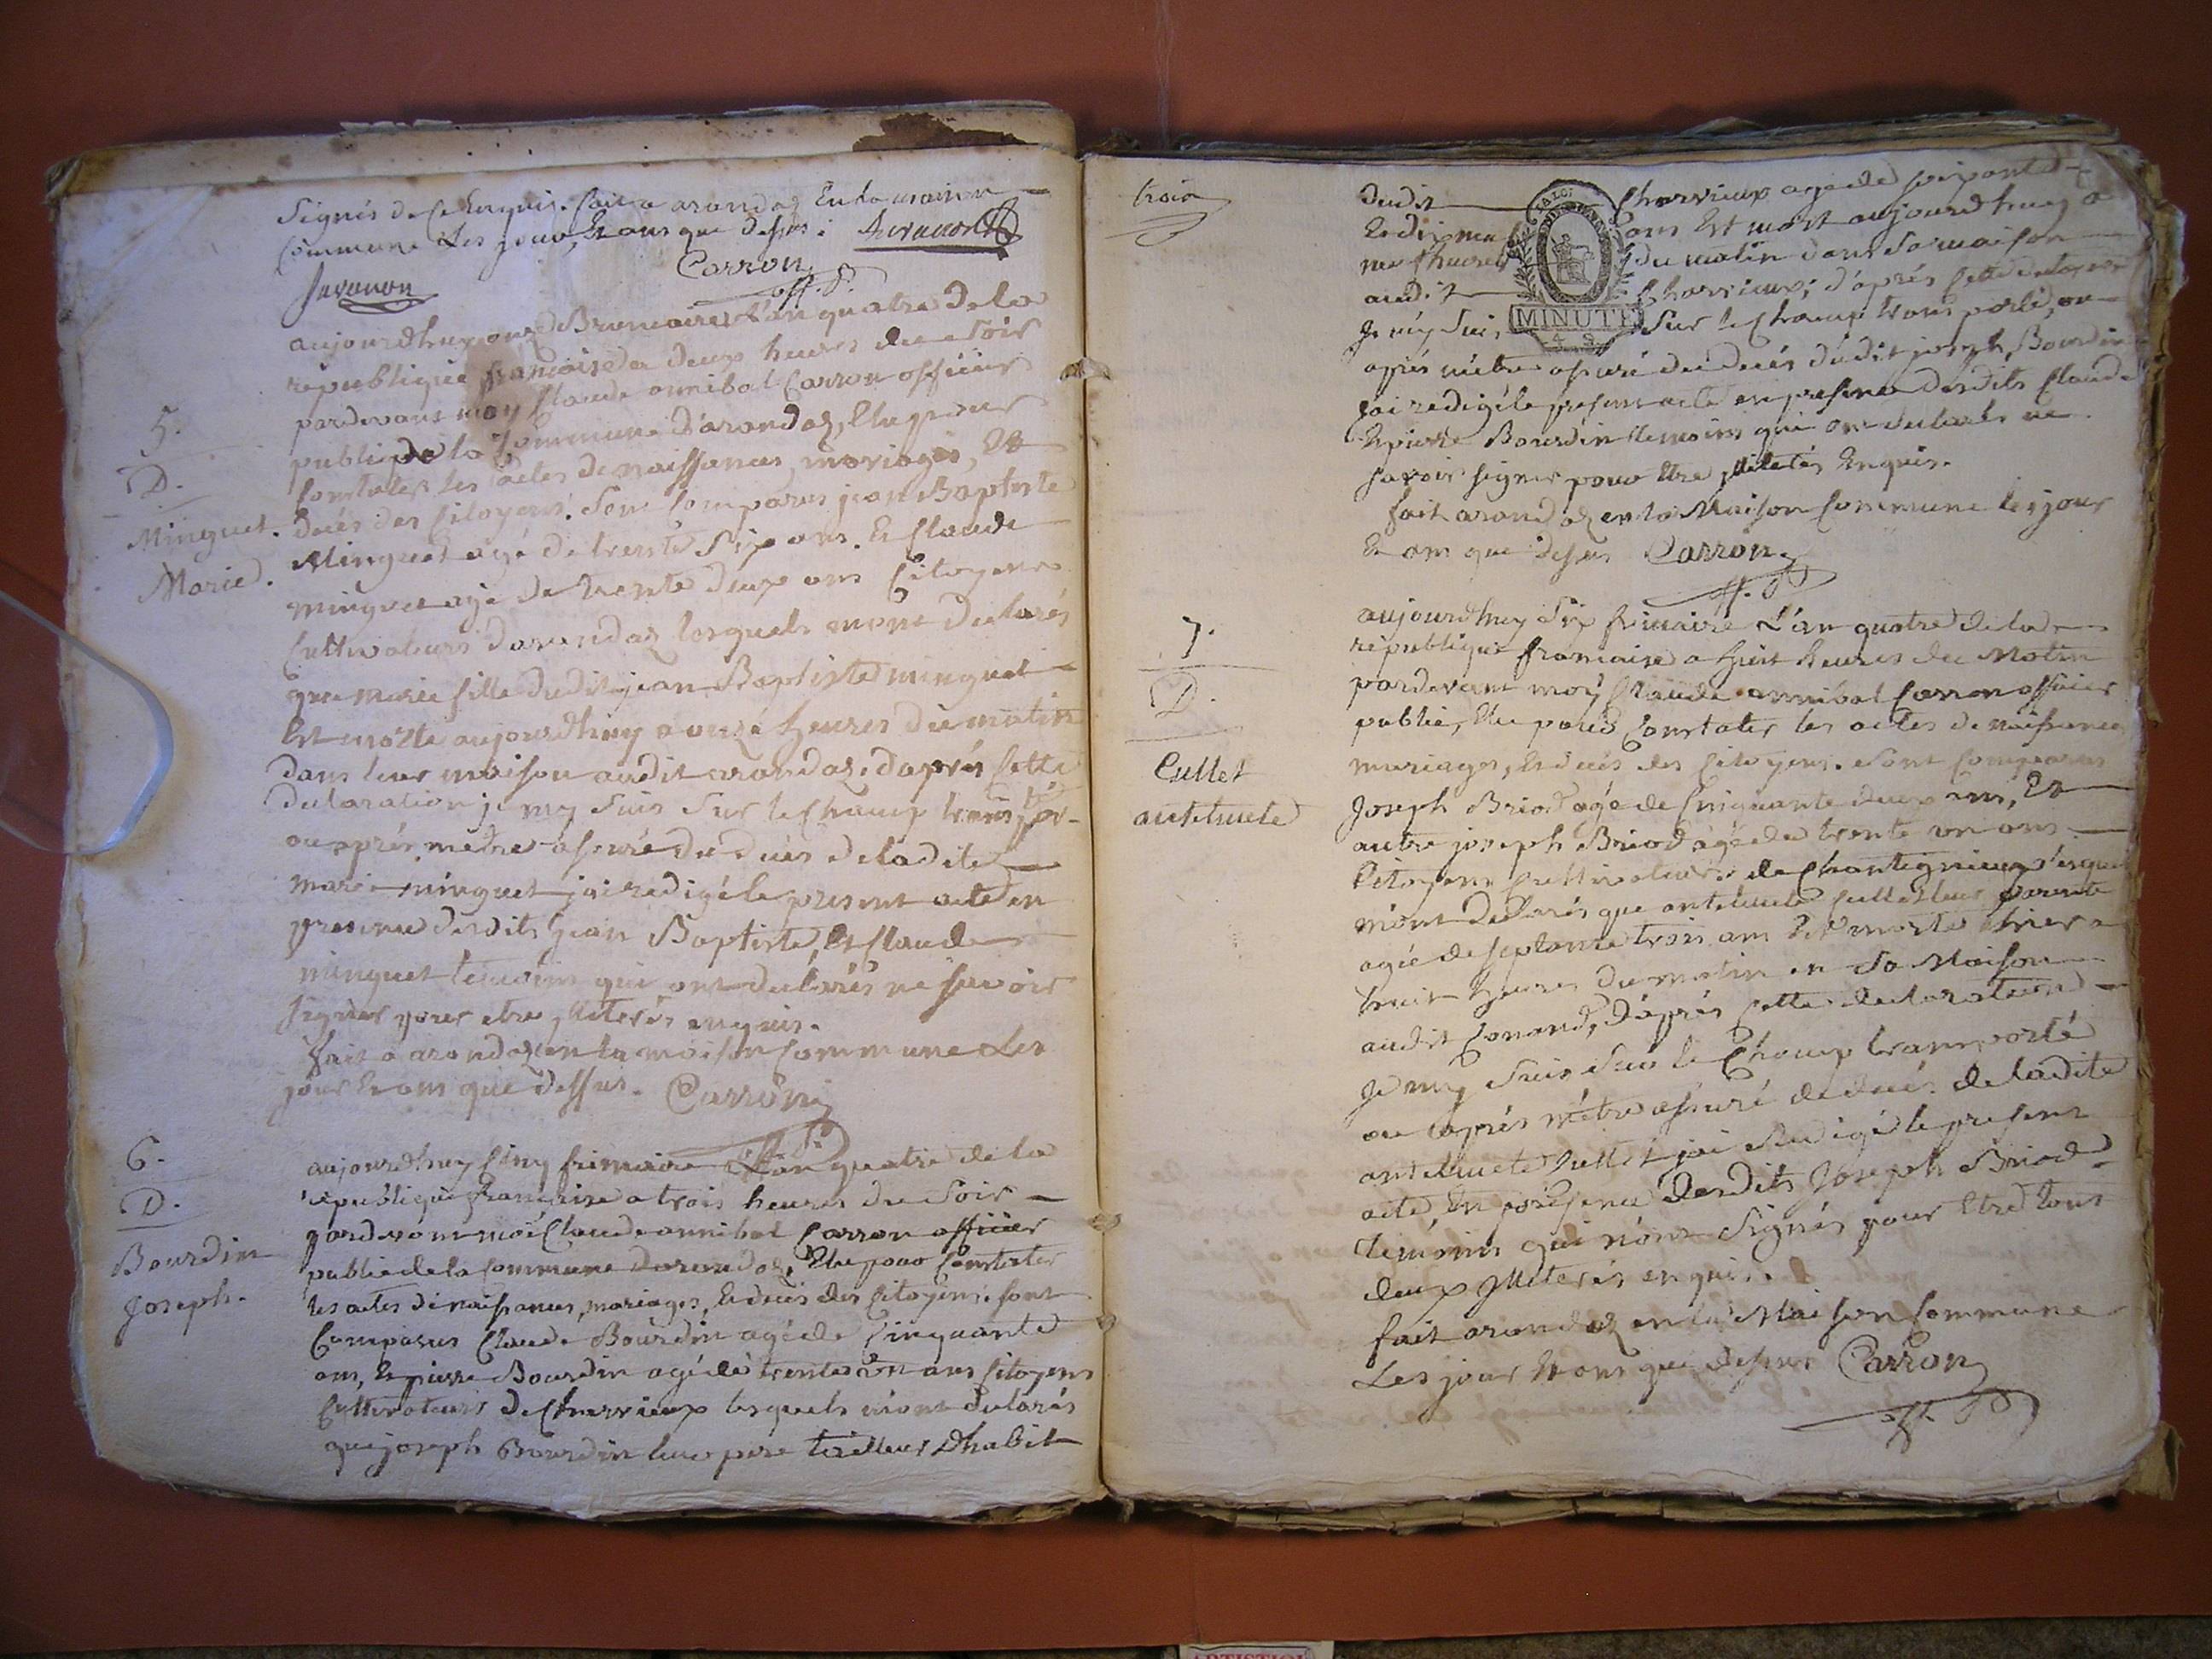 Signés de ce Enquis. fait a arandaz En la maison
Commune Les jour, Et ans que dessus : Juvanon
Carron
Juvanon
off. P.
5.
D.
Minguet.
Marie.
aujourdhuy onze Brumaire L'an quatre de la
republique francaise a deux heures du Soir
pardevant moy Claude annibal Carron officier
public de la Commune d'arandaz, Elu pour
Constater les actes de naissances, mariages, Et
decés des Citoyens. Sont Comparus jean Baptiste
Minguet agé de trente Six ans. Et Claude
minguet agé de trente deux ans Citoyens
Cultivateurs d'arandaz lesquels m'ont declarés
que marie fille dudit jean Baptiste minguet
Est morte aujourdhuy a onze heures du matin
dans leur maison audit arandaz. d'aprés Cette
declaration je m'y Suis Sur le Champ transpor-
ou aprés metre assuré du decés de ladite
marie minguet jai redigé le present acte en
presence desdits Jean Baptiste, Et Claude
minguet temoins qui ont declarés ne savoir
signer pour etre jlliterés enquis.
fait a arandaz en la maison Commune Les
jour Et ans que dessus. Carron
off. P.
6.
D.
Bourdin
Joseph.
aujourdhuy Cinq frimaire L'an quatre de la
republique francaise a trois heures du Soir
pardevant moi Claude annibal Carron officier
public de la Commune d'arandaz, Elu pour Constater
les actes de naissances, mariages, Et decés des Citoyens. sont
Comparus Claude Bourdin agé de Cinquante
ans, Et pierre Bourdin agé de trente un ans Citoyens
Cultivateurs de Charvieux lesquels m'ont declarés
que joseph Bourdin leur pere tailleur d'habit
trois
dudit Charvieux agé de soixante
Et dix neuf ans Est mort aujourdhuy a
neuf heures du matin dans Sa maison
audit Charvieux; d'aprés Cette declaration
Je m'y Suis Sur le Champ transporté, ou
LA LOI
MINUTE
aprés m'etre assuré du decés dudit joseph Bourdin
jai redigé le present acte en presence desdits Claude
Et pierre Bourdin temoins qui ont declarés ne
savoir signer pour Etre jlliterés Enquis.
fait arandaz en la Maison Commune les jour
Et ans que dessus Carron
off. P
7.
D.
Cullet
anthelmete
aujourdhuy Six frimaire L'an quatre de la
republique francaise a huit heures du Matin
pardevant moy Claude annibal Carron officier
public, Elu pour Constater les actes de naissances
mariages, Et decés des Citoyens. Sont Comparus
Joseph Briod agé de Cinquante deux ans, Et
autre joseph Briod agé de trente un ans
Citoyens Cultivateurs de Chantegnieux lesquels
m'ont declarés que antelmete Cullet leur parente
agée de septante trois ans Est morte hier a
huit heures du matin en Sa Maison
audit Conand, D'aprés Cette declaration
Je m'y Suis Sur le Champ transporté
ou aprés m'etre assuré du decés de ladite
antelmete Cullet jai Redigé le present
acte, En presence Desdits Joseph Briod
temoins qui n'ont Signés pour Etre tous
deux jlliterés enquis.
fait arandaz en la Maison Commune
Les jour Et ans que dessus Carron
off. P